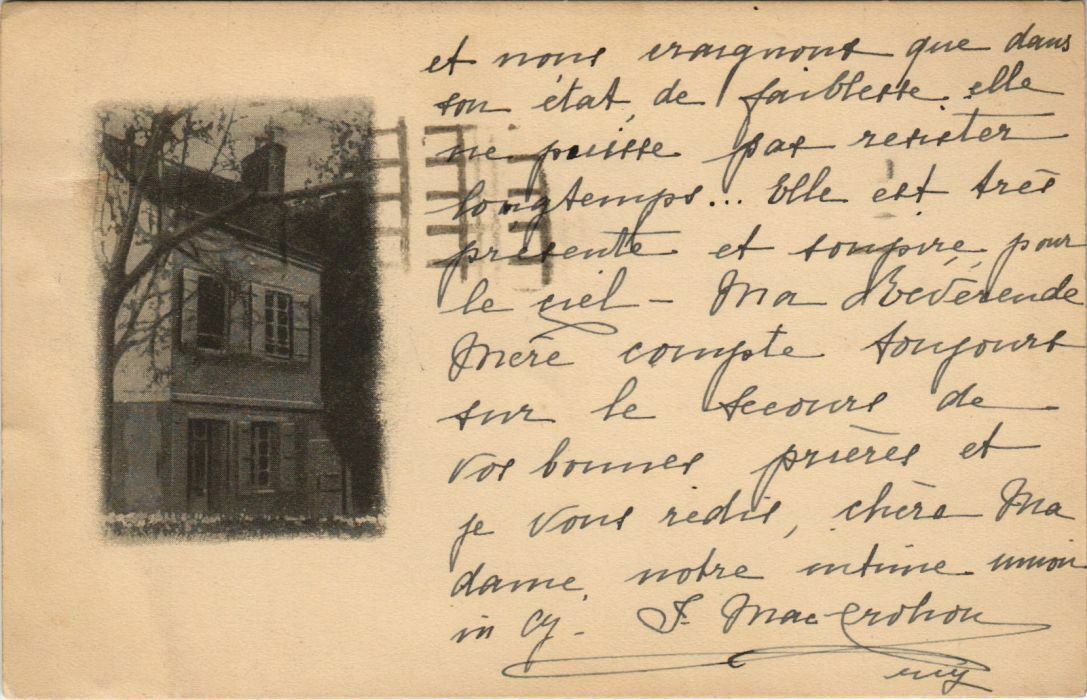 et nous craignons que dans
son état de faiblesse elle
ne puisse pas resister
longtemps... Elle est très
présente et soupire pour
le ciel - Ma Révérende
Mère compte toujours
sur le secours de
vos bonnes prières et
je vous redis, chère Ma
dame, notre intime union
in Cj. J. Mac-Crohon
rcj